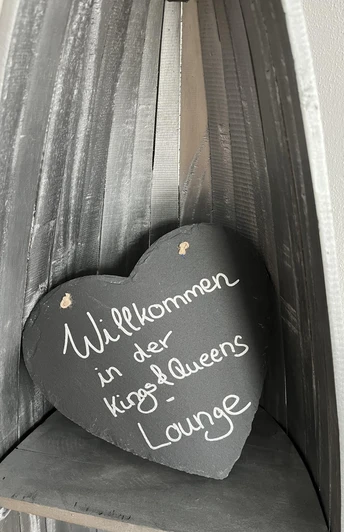 Willkommen
in der
Kings & Queens
-
Lounge